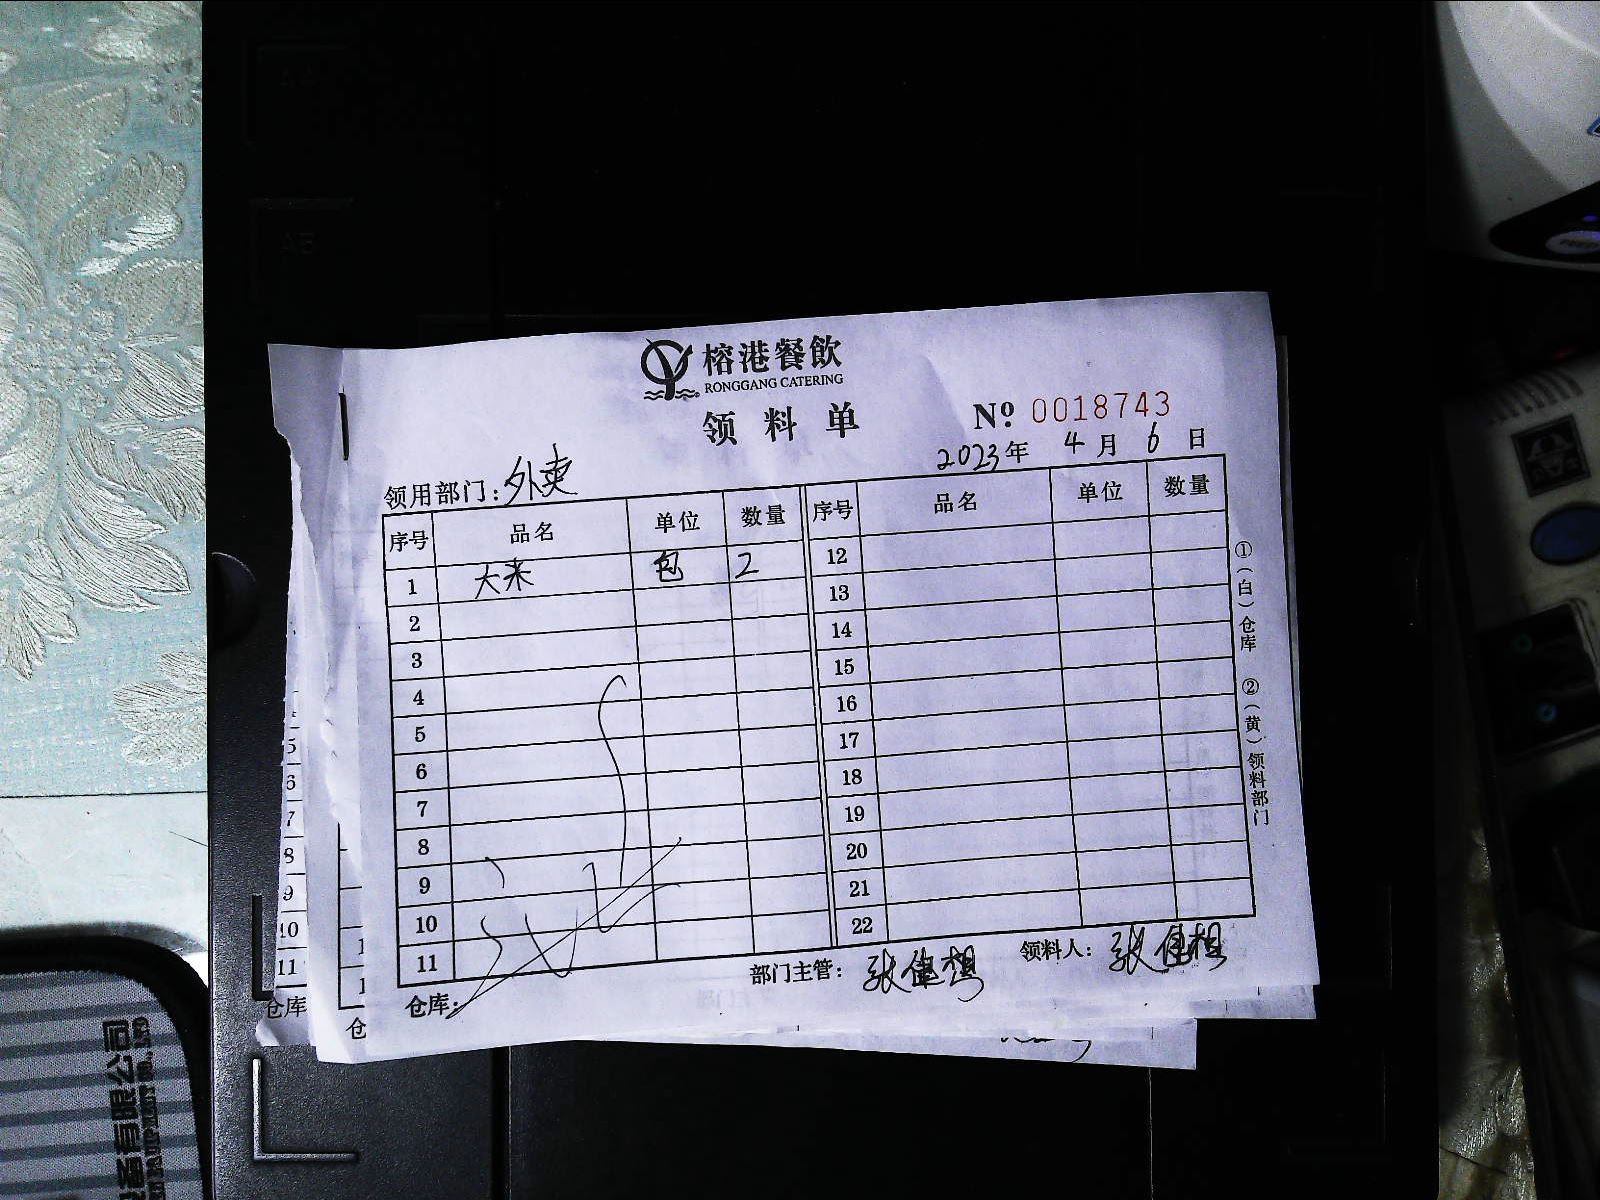 榕港餐飲
RONGGANG CATERING
领料单
Nº 0018743
2023年 4月 6日
领用部门：外卖
序号 品名 单位 数量 序号 品名 单位 数量
1 大米 包 2 12
2 13
3 14
4 15
5 16
6 17
7 18
8 19
9 20
10 21
11 22
仓库： 部门主管： 领料人：
①（白）仓库 ②（黄）领料部门
5
6
7
8
9
10
11
仓库
仓